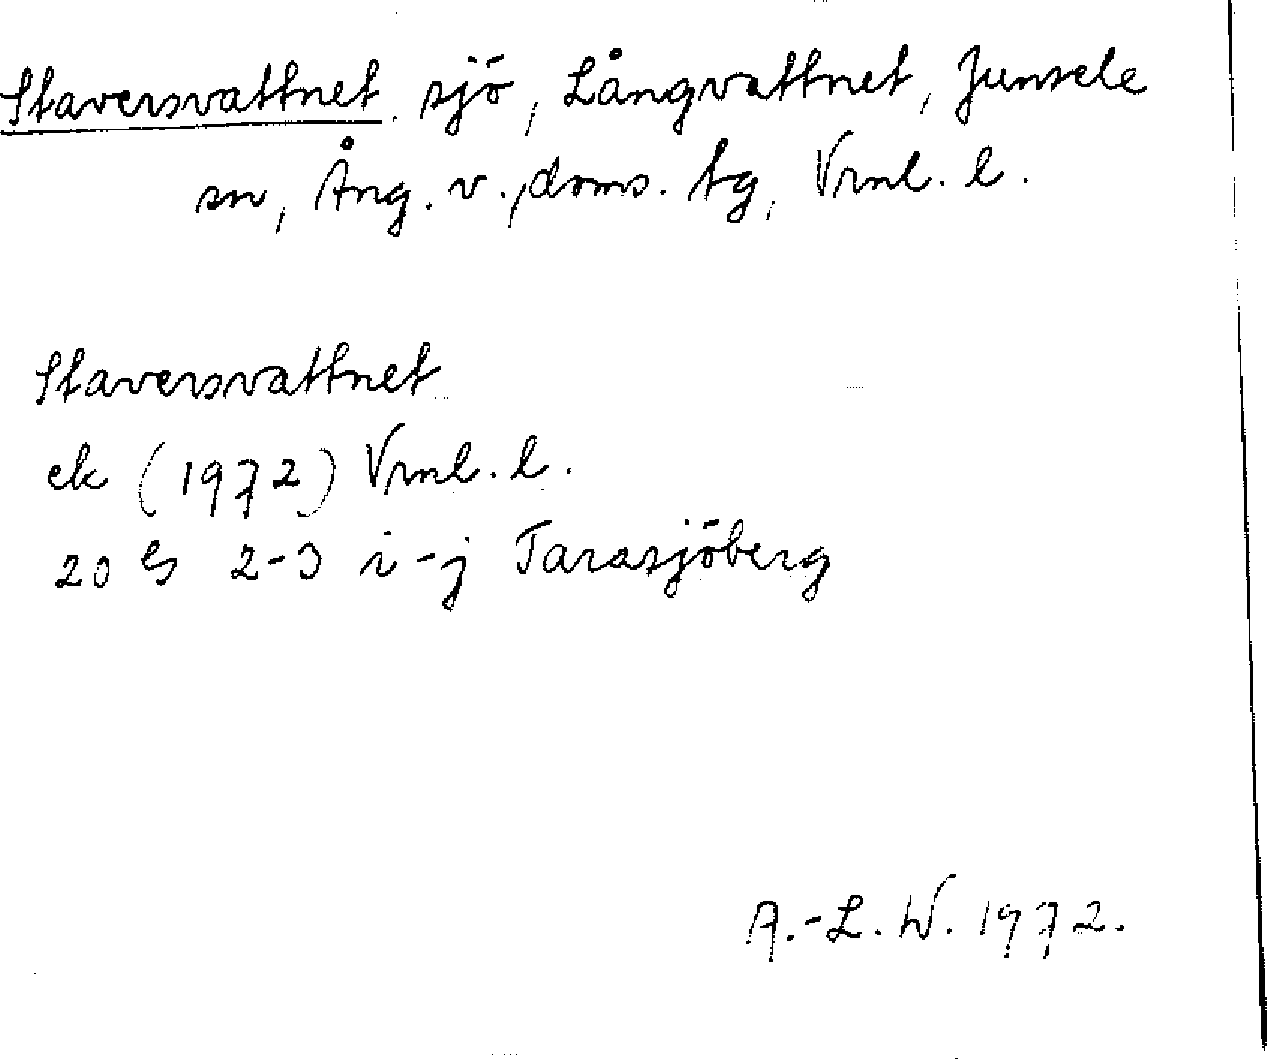 Staversvattnet sjö, Långvattnet, Junsele
sn, Ång. v., doms. tg, Vrnl. l.
Staversvattnet
ek (1972) Vrnl. l.
20 G 2-3 i-j Tarasjöberg
A.-L. W. 1972.